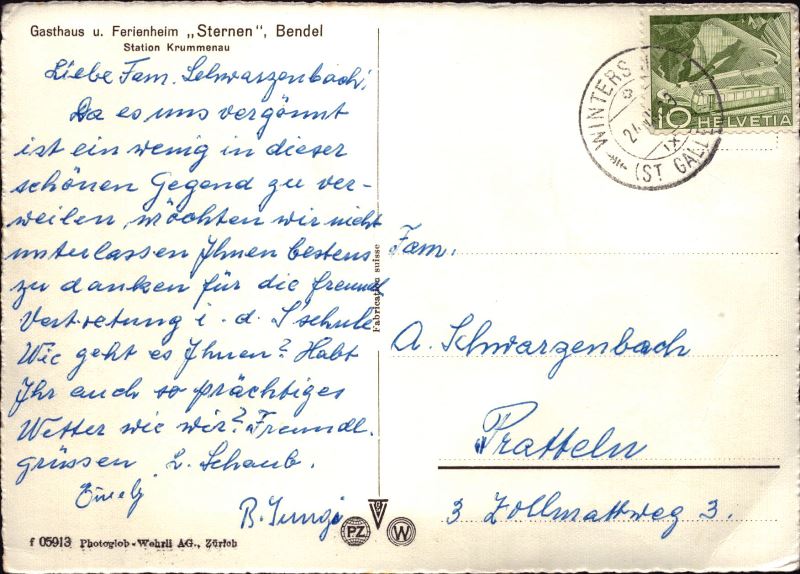 Gasthaus u. Ferienheim „Sternen", Bendel
Station Krummenau
Liebe Fam. Schwarzenbach!
Da es uns vergönnt
ist ein wenig in dieser
schönen Gegend zu ver-
weilen, möchten wir nicht
unterlassen Ihnen bestens
zu danken für die freundl
Vertretung i. d. S'schule
Wie geht es Ihnen? Habt
Ihr auch so prächtiges
Wetter wie wir? Freundl.
grüssen L. Schaub.
B.
f 05913 Photoglob-Wehrli AG., Zürich
Fabrication suisse
PZ
W
WINTERS
(ST GALL
10 HELVETIA
Fam.
A. Schwarzenbach
Pratteln
3 Zollmattweg 3.